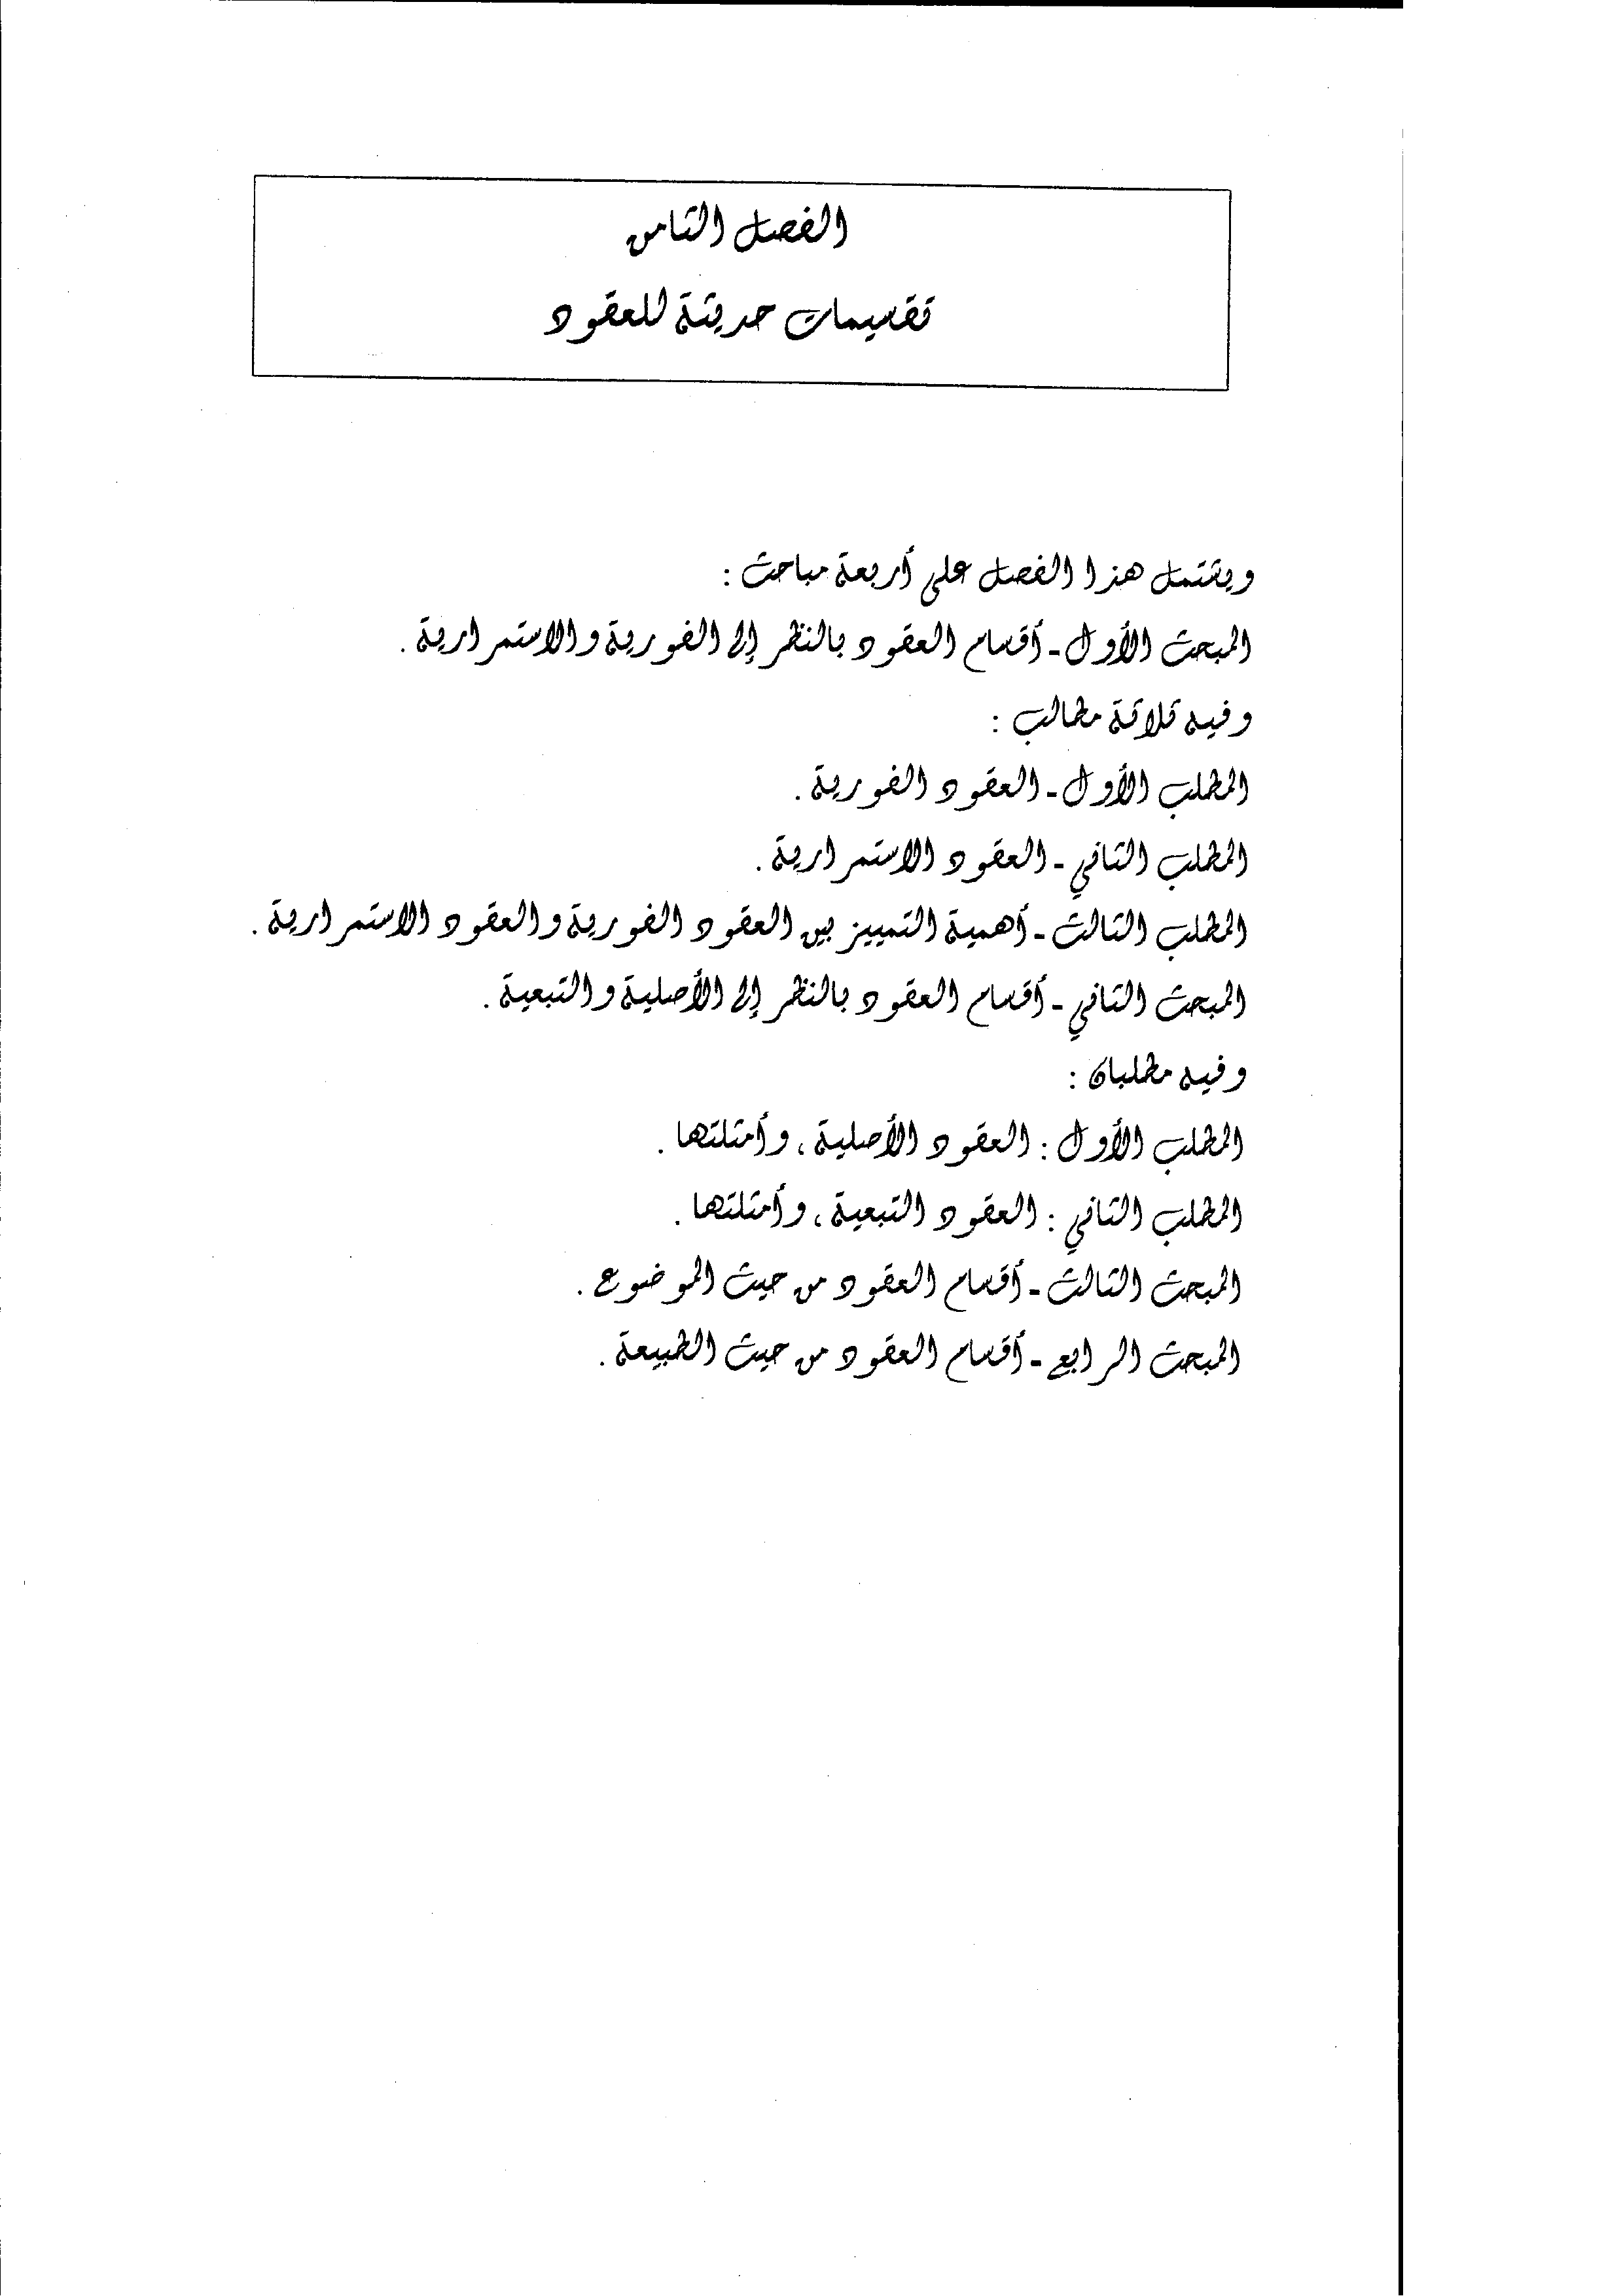 الفصل الثامن
تقسيمات حديثة للعقود
ويشتمل هذا الفصل على أربعة مباحث :
المبحث الأول - أقسام العقود بالنظر إلى الفورية والاستمرارية .
وفيه ثلاثة مطالب :
المطلب الأول - العقود الفورية .
المطلب الثاني - العقود الاستمرارية .
المطلب الثالث - أهمية التمييز بين العقود الفورية والعقود الاستمرارية .
المبحث الثاني - أقسام العقود بالنظر إلى الأصلية والتبعية .
وفيه مطلبان :
المطلب الأول : العقود الأصلية ، وأمثلتها .
المطلب الثاني : العقود التبعية ، وأمثلتها .
المبحث الثالث - أقسام العقود من حيث الموضوع .
المبحث الرابع - أقسام العقود من حيث الطبيعة .